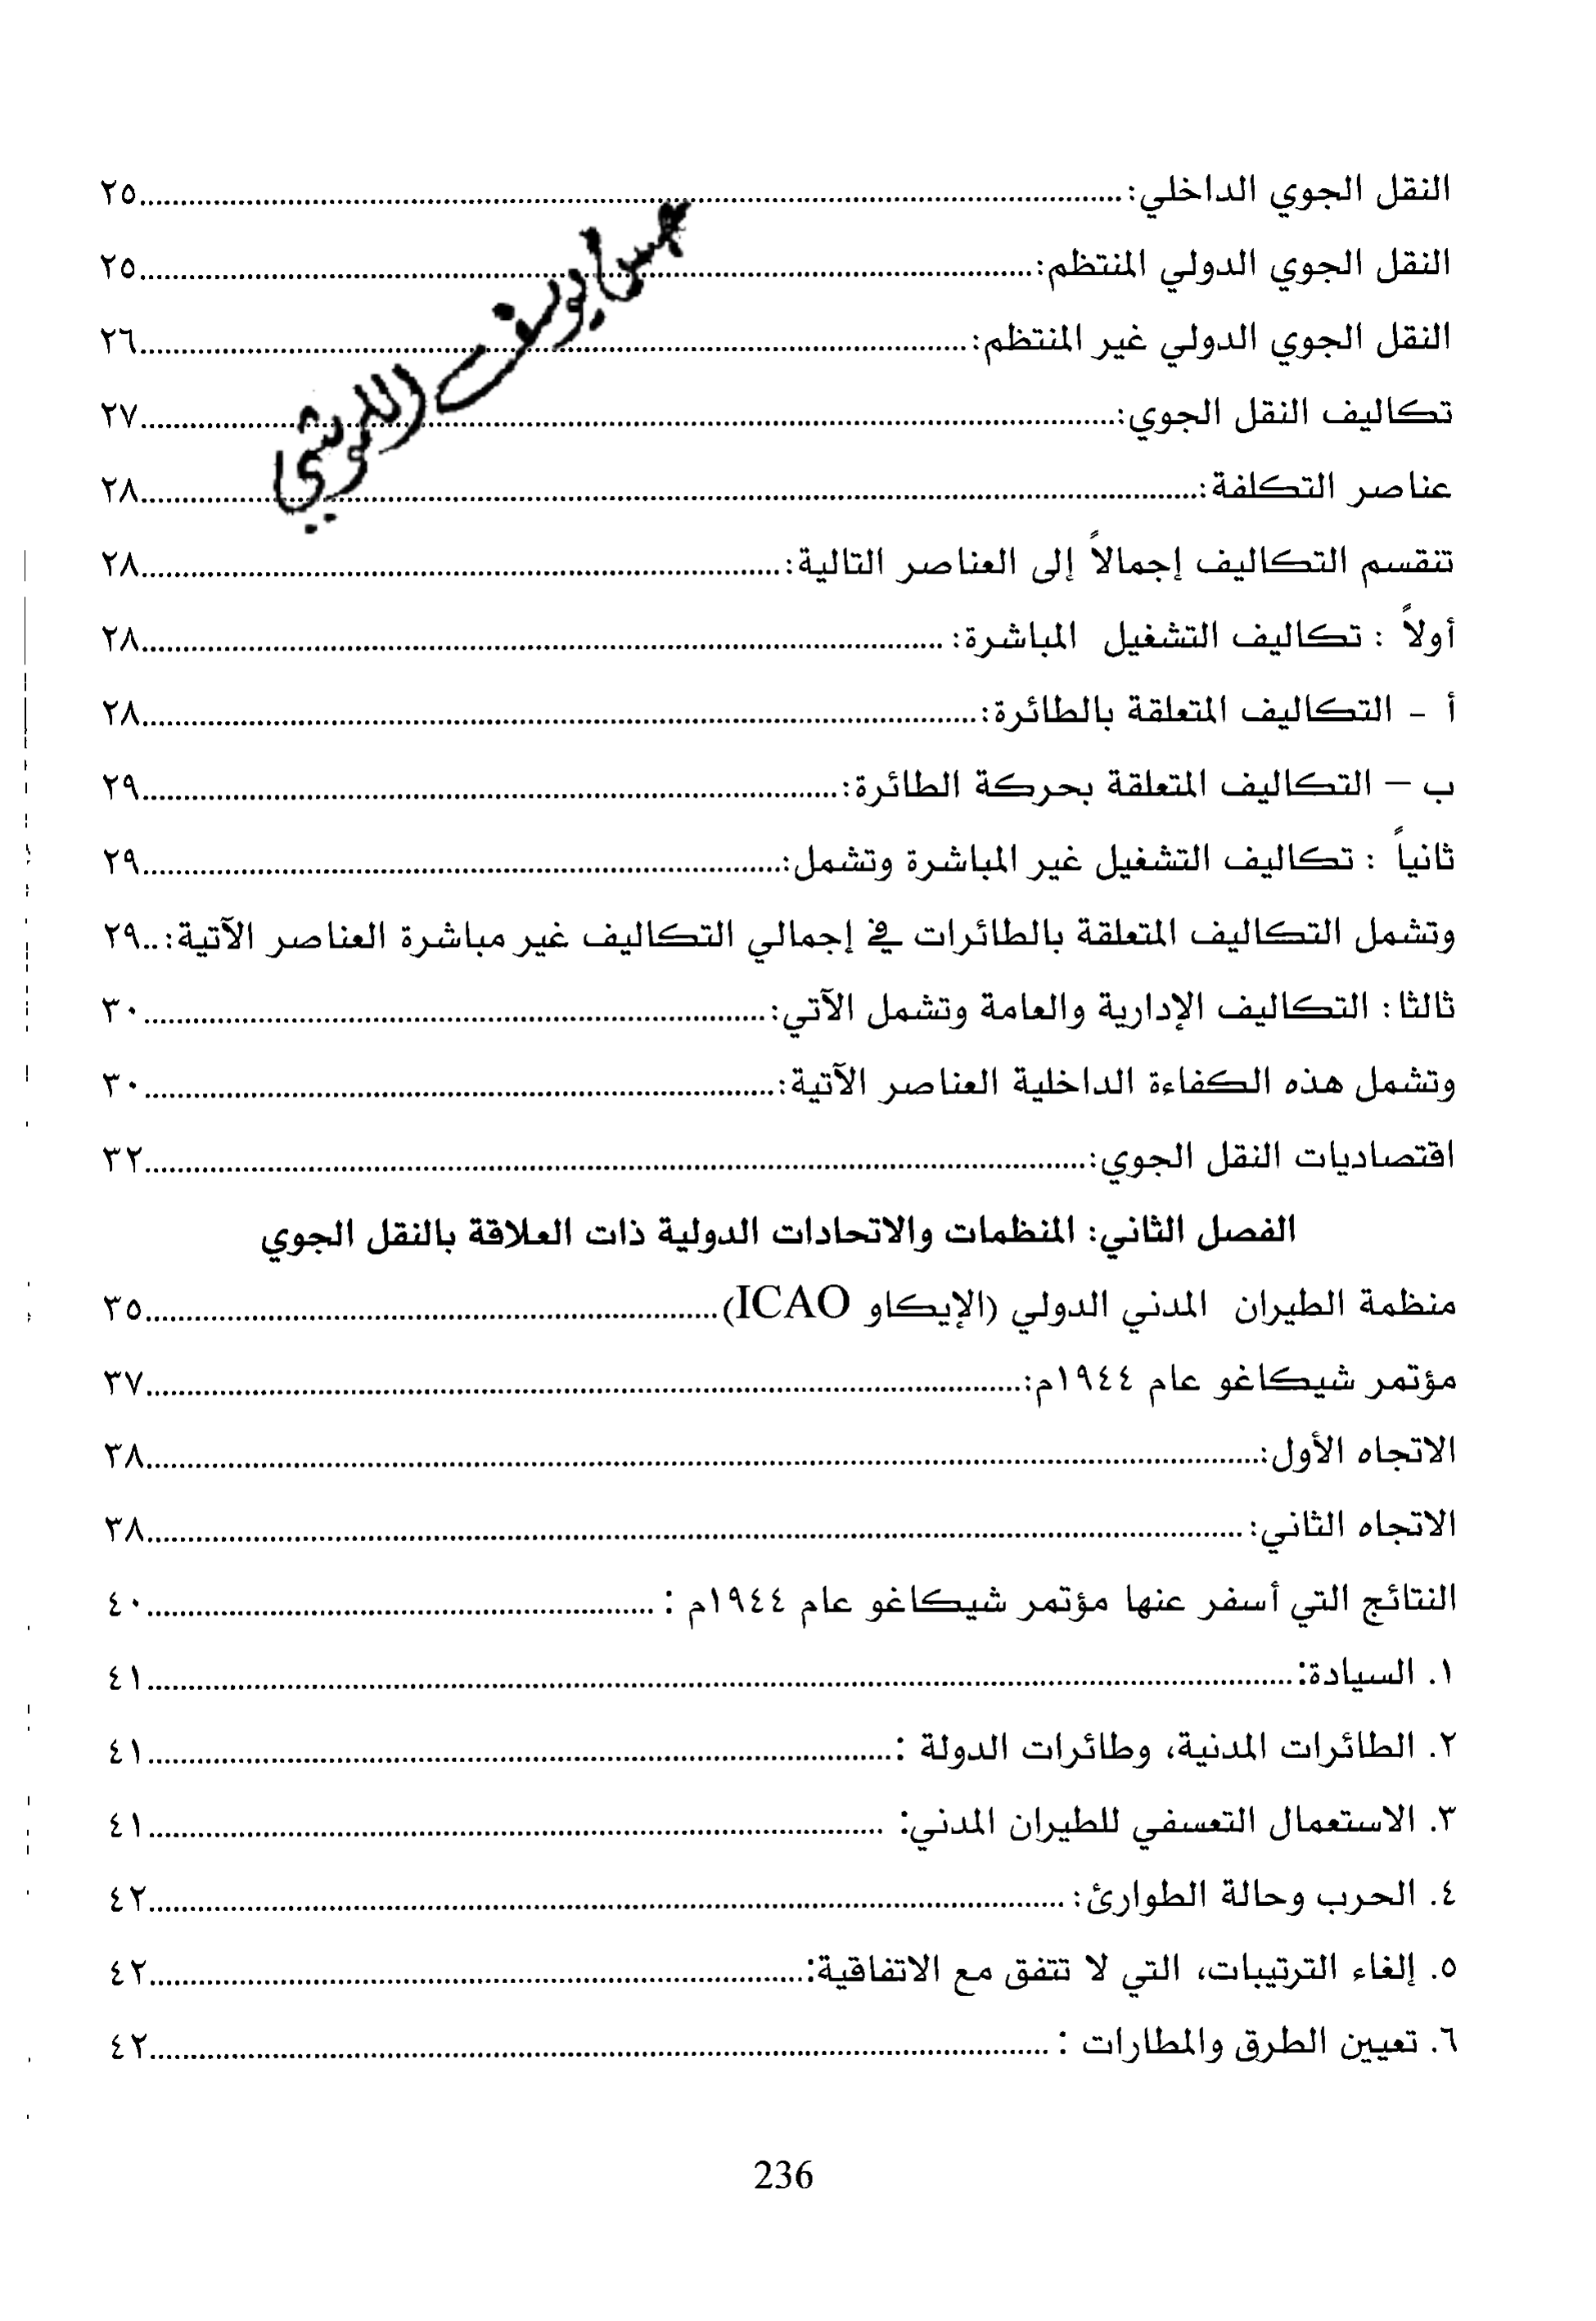 النقل الجوي الداخلي:..........٢٥
النقل الجوي الدولي المنتظم:..........٢٥
النقل الجوي الدولي غير المنتظم:..........٢٦
تكاليف النقل الجوي:..........٢٧
عناصر التكلفة:..........٢٨
تنقسم التكاليف إجمالاً إلى العناصر التالية:..........٢٨
أولاً : تكاليف التشغيل المباشرة:..........٢٨
أ - التكاليف المتعلقة بالطائرة:..........٢٨
ب – التكاليف المتعلقة بحركة الطائرة:..........٢٩
ثانياً : تكاليف التشغيل غير المباشرة وتشمل:..........٢٩
وتشمل التكاليف المتعلقة بالطائرات في إجمالي التكاليف غير مباشرة العناصر الآتية:..٢٩
ثالثا: التكاليف الإدارية والعامة وتشمل الآتي:..........٣٠
وتشمل هذه الكفاءة الداخلية العناصر الآتية:..........٣٠
اقتصاديات النقل الجوي:..........٣٢
الفصل الثاني: المنظمات والاتحادات الدولية ذات العلاقة بالنقل الجوي
منظمة الطيران المدني الدولي (الإيكاو ICAO)..........٣٥
مؤتمر شيكاغو عام ١٩٤٤م:..........٣٧
الاتجاه الأول:..........٣٨
الاتجاه الثاني:..........٣٨
النتائج التي أسفر عنها مؤتمر شيكاغو عام ١٩٤٤م :..........٤٠
١. السيادة:..........٤١
٢. الطائرات المدنية، وطائرات الدولة :..........٤١
٣. الاستعمال التعسفي للطيران المدني:..........٤١
٤. الحرب وحالة الطوارئ:..........٤٢
٥. إلغاء الترتيبات، التي لا تتفق مع الاتفاقية:..........٤٢
٦. تعيين الطرق والمطارات :..........٤٢
236